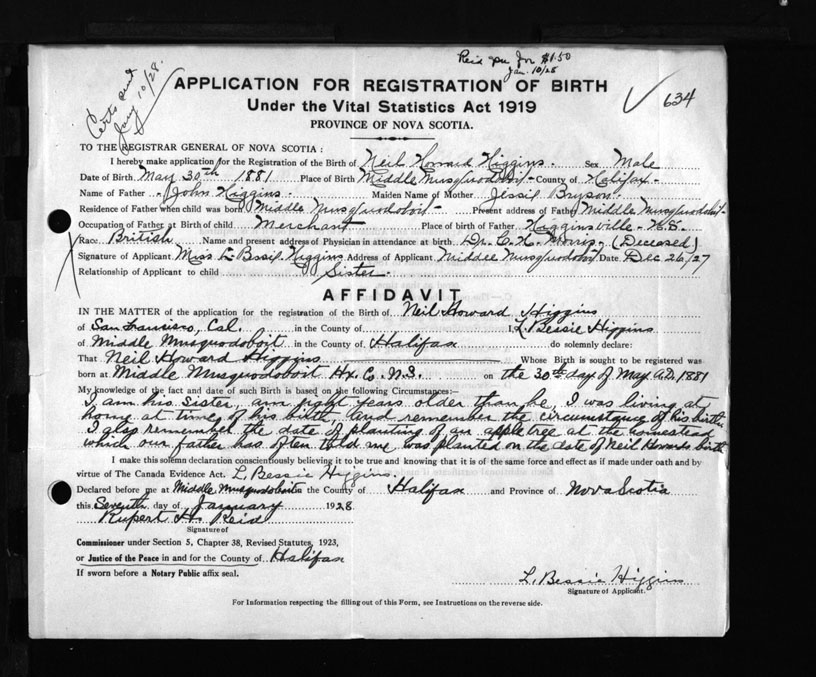 Reid for $1.50
Jan. 10/28
Certs sent
Jany 10/28.
634
APPLICATION FOR REGISTRATION OF BIRTH
Under the Vital Statistics Act 1919
PROVINCE OF NOVA SCOTIA.
TO THE REGISTRAR GENERAL OF NOVA SCOTIA :
I hereby make application for the Registration of the Birth of Neil Howard Higgins. Sex Male
Date of Birth May 30th 1881 Place of Birth Middle Musquodoboit - County of Halifax -
Name of Father John Higgins. Maiden Name of Mother Jessie Bryson.
Residence of Father when child was born Middle Musquodoboit - Present address of Father Middle Musquodoboit -
Occupation of Father at Birth of child Merchant Place of birth of Father Higginsville - N.S.
Race British Name and present address of Physician in attendance at birth Dr. C. N. Morris - (Deceased)
Signature of Applicant Miss L. Bessie Higgins Address of Applicant Middle Musquodoboit Date Dec 26/27
Relationship of Applicant to child Sister
AFFIDAVIT
IN THE MATTER of the application for the registration of the Birth of Neil Howard Higgins
of San Fransisco, Cal. in the County of I, L. Bessie Higgins
of Middle Musquodoboit in the County of Halifax do solemnly declare:
That Neil Howard Higgins Whose Birth is sought to be registered was
born at Middle Musquodoboit Hx. Co. N.S. on the 30th day of May A.D. 1881
My knowledge of the fact and date of such Birth is based on the following Circumstances:—
I am his sister, am eight years older than he, I was living at
home at time of his birth, and remember the circumstance of his birth
I also remember the date of planting of an apple tree at the homestead
which our father has often told me was planted on the date of Neil Howards birth
I make this solemn declaration conscientiously believing it to be true and knowing that it is of the same force and effect as if made under oath and by
virtue of The Canada Evidence Act. L. Bessie Higgins.
Declared before me at Middle Musquodoboit in the County of Halifax and Province of Nova Scotia
this Seventh day of January 1928
Rupert H. Reid
Signature of
Commissioner under Section 5, Chapter 38, Revised Statutes, 1923,
or Justice of the Peace in and for the County of Halifax
If sworn before a Notary Public affix seal.
L. Bessie Higgins
Signature of Applicant.
For Information respecting the filling out of this Form, see Instructions on the reverse side.